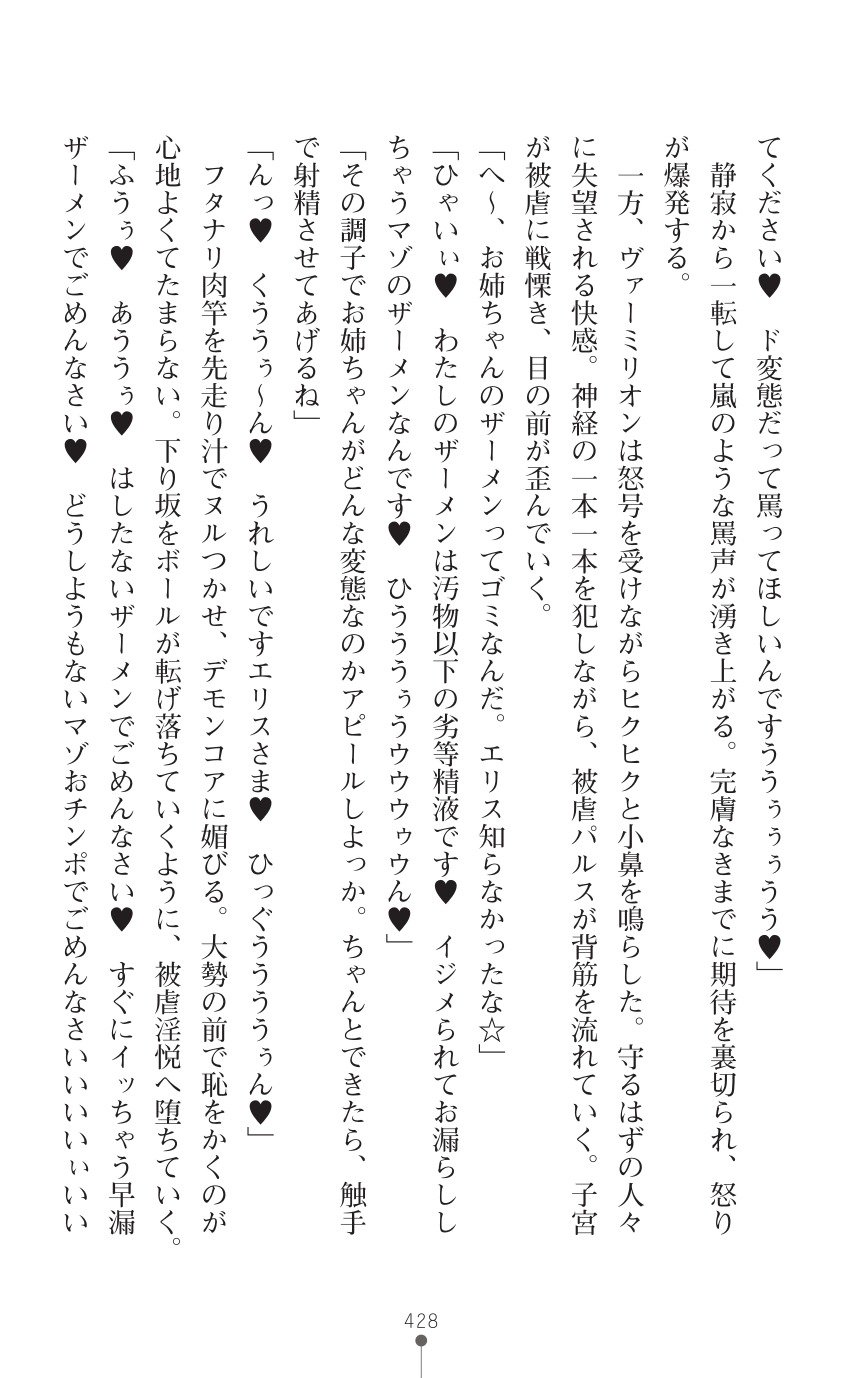 てください♥　ド変態だって罵ってほしいんですううぅぅぅうう♥」
　静寂から一転して嵐のような罵声が湧き上がる。完膚なきまでに期待を裏切られ、怒り
が爆発する。
　一方、ヴァーミリオンは怒号を受けながらヒクヒクと小鼻を鳴らした。守るはずの人々
に失望される快感。神経の一本一本を犯しながら、被虐パルスが背筋を流れていく。子宮
が被虐に戦慄き、目の前が歪んでいく。
「へ～、お姉ちゃんのザーメンってゴミなんだ。エリス知らなかったな☆」
「ひゃいぃ♥　わたしのザーメンは汚物以下の劣等精液です♥　イジメられてお漏らしし
ちゃうマゾのザーメンなんです♥　ひうううぅうウウウゥウん♥」
「その調子でお姉ちゃんがどんな変態なのかアピールしよっか。ちゃんとできたら、触手
で射精させてあげるね」
「んっ♥　くううぅ～ん♥　うれしいですエリスさま♥　ひっぐううううぅん♥」
　フタナリ肉竿を先走り汁でヌルつかせ、デモンコアに媚びる。大勢の前で恥をかくのが
心地よくてたまらない。下り坂をボールが転げ落ちていくように、被虐淫悦へ堕ちていく。
「ふうぅ♥　あううぅ♥　はしたないザーメンでごめんなさい♥　すぐにイッちゃう早漏
ザーメンでごめんなさい♥　どうしようもないマゾおチンポでごめんなさいいいいぃいい
428